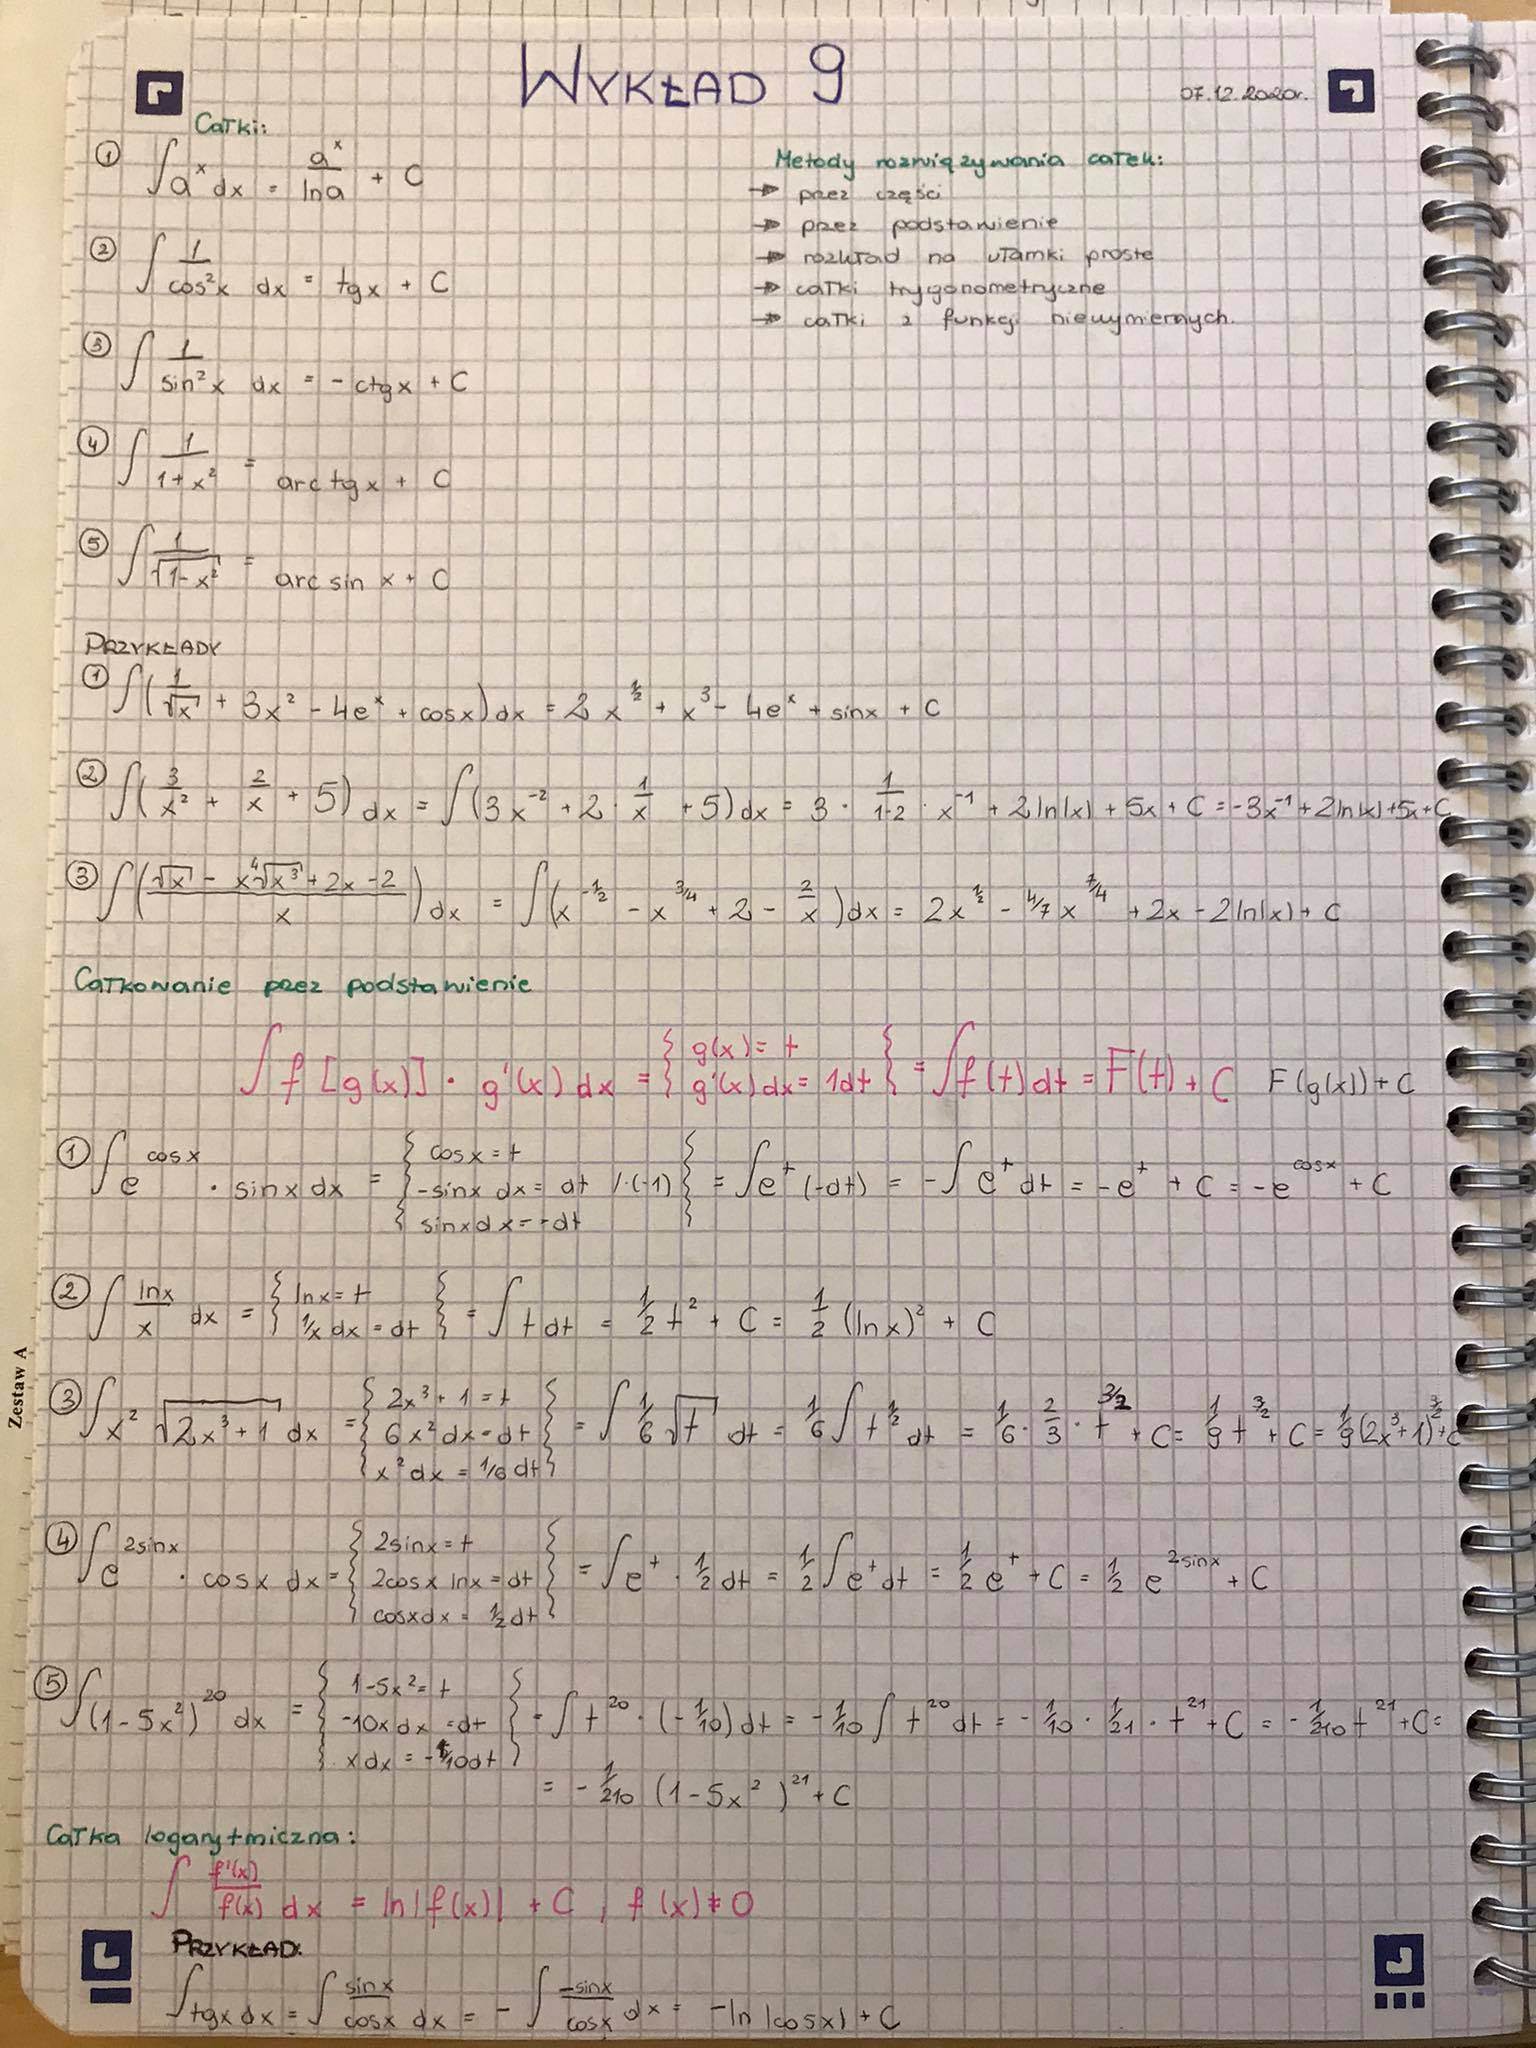 WYKŁAD 9
07.12.2020r.
Całki:
① ∫ a^x dx = a^x/lna + C
② ∫ 1/cos²x dx = tgx + C
③ ∫ 1/sin²x dx = -ctgx + C
④ ∫ 1/(1+x²) = arctgx + C
⑤ ∫ 1/√(1-x²) = arcsin x + C
Metody rozwiązywania całek:
→ przez części
→ przez podstawienie
→ rozkład na ułamki proste
→ całki trygonometryczne
→ całki z funkcji niewymiernych.
PRZYKŁADY
① ∫(1/√x + 3x² - 4e^x + cosx)dx = 2x^(1/2) + x³ - 4e^x + sinx + C
② ∫(3/x² + 2/x + 5)dx = ∫(3x^(-2) + 2·1/x + 5)dx = 3 · 1/(1-2) · x^(-1) + 2ln|x| + 5x + C = -3x^(-1) + 2ln|x| + 5x + C
③ ∫((√x - x⁴√x³ + 2x - 2)/x)dx = ∫(x^(-1/2) - x^(3/4) + 2 - 2/x)dx = 2x^(1/2) - 4/7 x^(7/4) + 2x - 2ln|x| + C
Całkowanie przez podstawienie
∫ f[g(x)] · g'(x) dx = { g(x) = t
g'(x)dx = 1dt } = ∫f(t)dt = F(t) + C F(g(x)) + C
① ∫ e^cosx · sinx dx = { cosx = t
-sinx dx = dt /·(-1)
sinxdx = -dt } = ∫e^t (-dt) = -∫e^t dt = -e^t + C = -e^cosx + C
② ∫ lnx/x dx = { lnx = t
1/x dx = dt } = ∫ t dt = 1/2 t² + C = 1/2 (lnx)² + C
③ ∫ x² √(2x³+1) dx = { 2x³ + 1 = t
6x²dx = dt
x²dx = 1/6 dt } = ∫ 1/6 √t dt = 1/6 ∫ t^(1/2) dt = 1/6 · 2/3 · t^(3/2) + C = 1/9 t^(3/2) + C = 1/9 (2x³+1)^(3/2) + C
④ ∫ e^2sinx · cosx dx = { 2sinx = t
2cosx lnx = dt
cosxdx = 1/2 dt } = ∫e^t · 1/2 dt = 1/2 ∫e^t dt = 1/2 e^t + C = 1/2 e^2sinx + C
⑤ ∫(1-5x²)^20 dx = { 1-5x² = t
-10xdx = dt
xdx = -1/10dt } = ∫ t^20 · (-1/10)dt = -1/10 ∫ t^20 dt = -1/10 · 1/21 · t^21 + C = -1/210 t^21 + C =
= -1/210 (1-5x²)^21 + C
Całka logarytmiczna:
∫ f'(x)/f(x) dx = ln|f(x)| + C , f(x) ≠ 0
PRZYKŁAD:
∫tgx dx = ∫ sinx/cosx dx = - ∫ -sinx/cosx dx = -ln|cosx| + C
Zestaw A